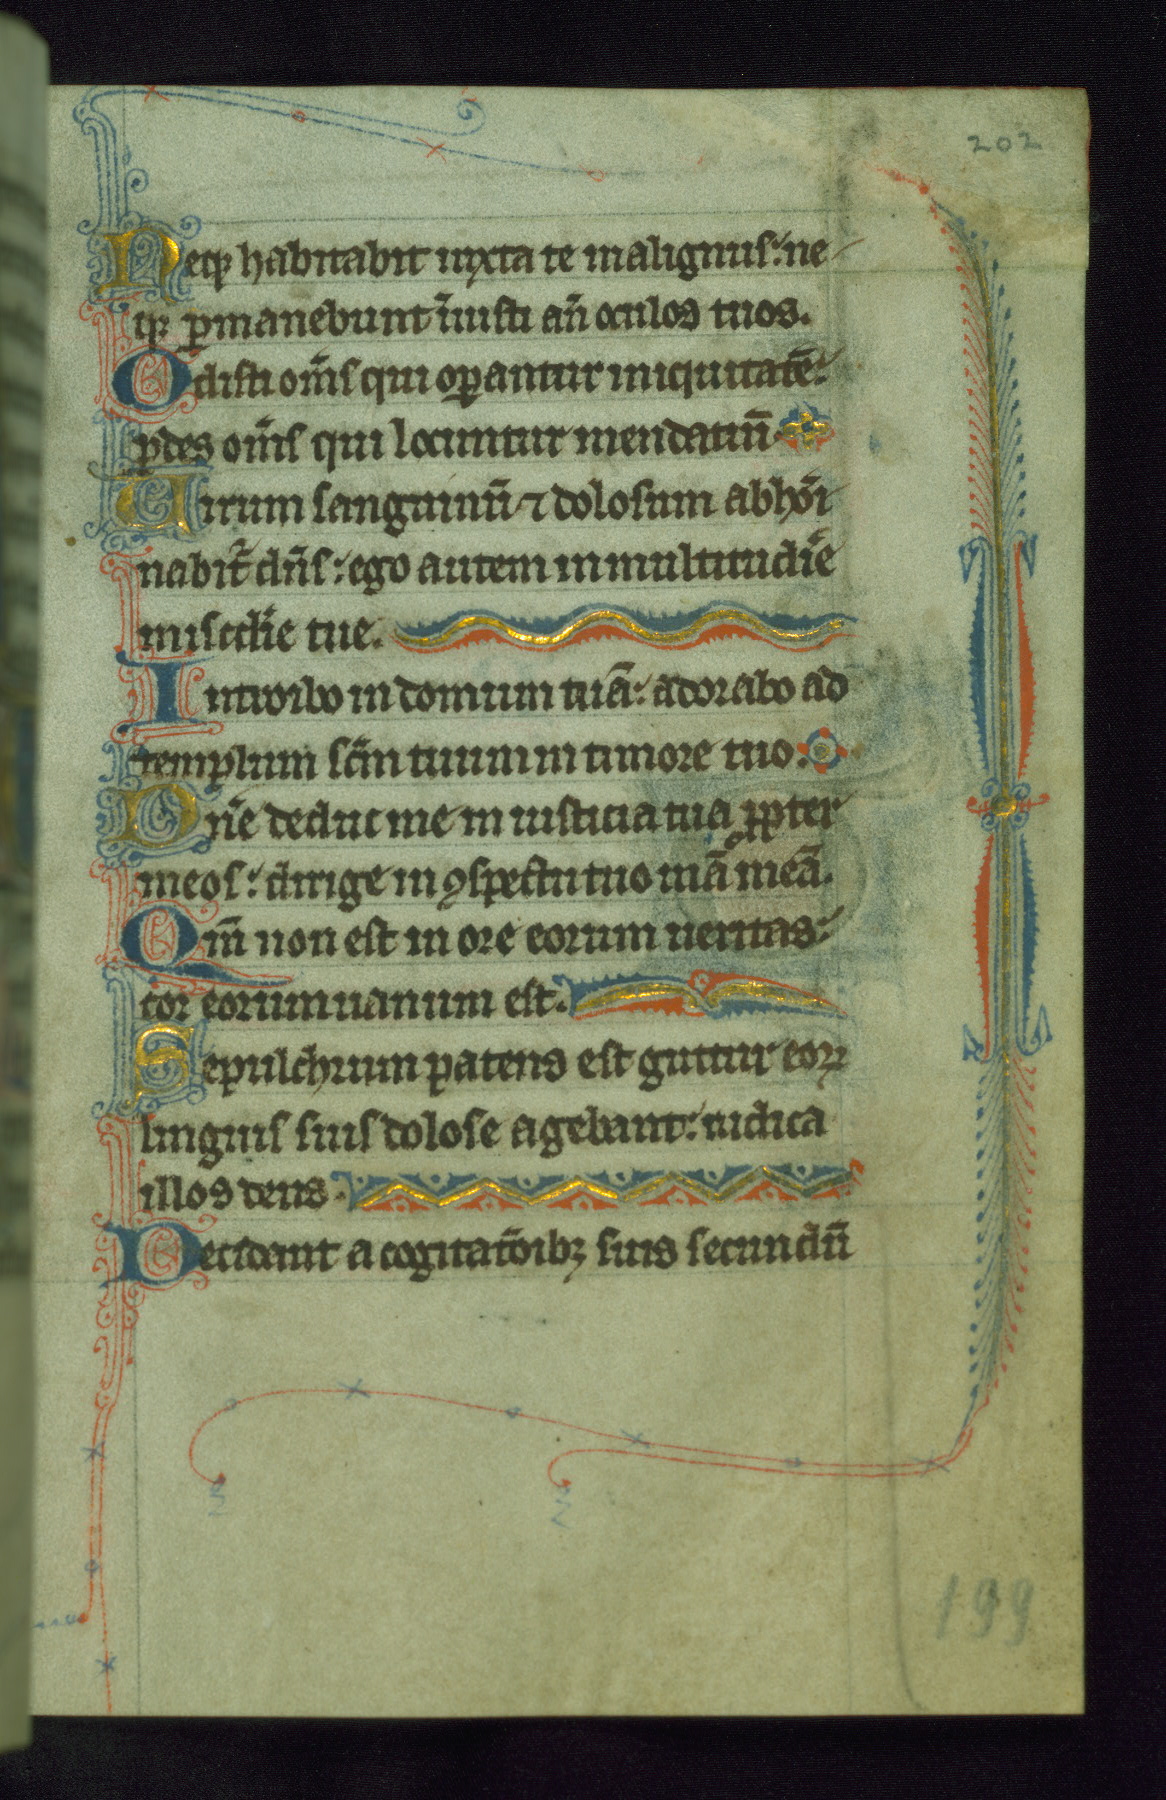 202
Neqꝫ habitabit iuxta te malignus: ne
qꝫ ꝑmanebunt iniusti an̄ oculos tuos.
Odisti om̄s qui oꝑantur iniquitatē:
ꝑdes om̄s qui locuntur mendatiū
Uirum sanguinū ⁊ dolosum abhoi
nabit̄ dn̄s: ego autem in multitudīe
misc̄die tue.
Introibo in domum tuā: adorabo ad
templum sc̄m tuum in timore tuo.
Dn̄e deduc me in iusticia tua ꝓpter
meos: dirige in ꝯspectu tuo uiā meā.
Qm̄ non est in ore eorum ueritas:
cor eorum uanum est.
Sepulchrum patens est guttur eoꝝ
linguis suis dolose agebant: iudica
illos deus.
Decidant a cogitatōibꝫ suis secundū
199